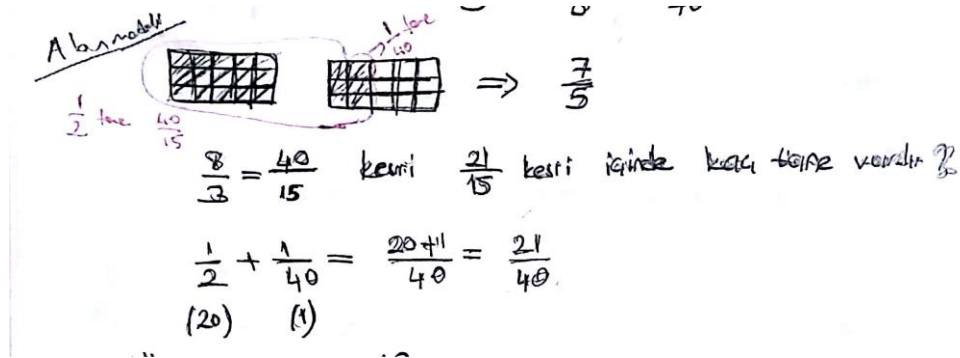 Alan modeli
1/40 tane
⇒ 7/5
1/2 tane 40/15
8/3 = 40/15 kesri 21/15 kesri içinde kaç tane vardır?
1/2 + 1/40 = 20+1/40 = 21/40
(20) (1)